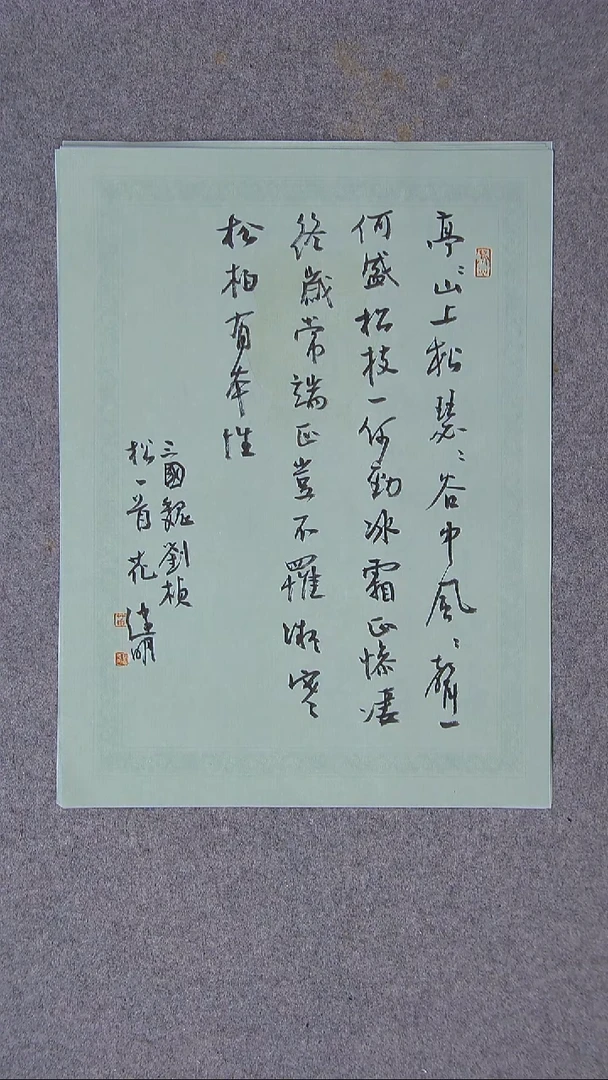 亭〻山上松瑟〻谷中風〻聲一
何盛松枝一何勁冰霜正慘凄
終歲常端正豈不羅凝寒
松柏有本性
三國魏劉楨
松一首 建明